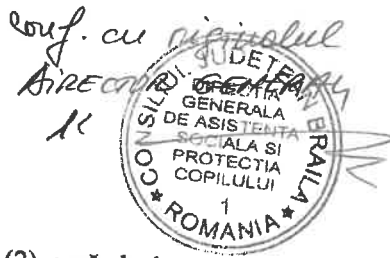 conf. cu originalul
DIRECTOR GENERAL
CONSILIUL JUDETEAN BRAILA
DIRECTIA
GENERALA
DE ASISTENTA
SOCIALA SI
PROTECTIA
COPILULUI
1
* ROMANIA *
(2)